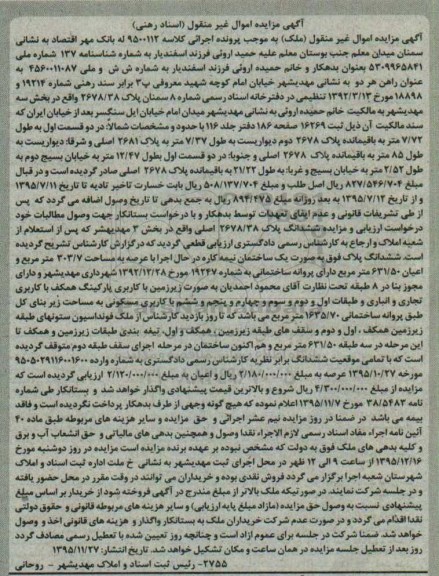 آگهی مزایده اموال غیر منقول (اسناد رهنی)
آگهی مزایده اموال غیر منقول (ملک) به موجب پرونده اجرائی کلاسه ۹۵۰۰۱۱۲ له بانک مهر اقتصاد به نشانی
سمنان میدان معلم جنب بوستان معلم علیه حمید اروئی فرزند اسفندیار به شماره شناسنامه ۱۳۷ شماره ملی
۵۳۰۹۹۶۵۸۴۱ بعنوان بدهکار و خانم حمیده اروئی فرزند اسفندیار به شماره ش ش و ملی ۴۵۶۰۰۱۱۰۸۷ به
عنوان راهن هر دو به نشانی مهدیشهر خیابان امام کوچه شهید معروفی پ۳ برابر سند رهنی شماره ۱۹۳۱۴ و
۱۸۸۹۸ مورخ ۱۳۹۲/۳/۱۳ تنظیمی در دفترخانه اسناد رسمی شماره ۸ سمنان پلاک ۲۶۷۸/۳۸ واقع در بخش سه
مهدیشهر به مالکیت خانم حمیده اروئی به نشانی مهدیشهر میدان امام خیابان ایل سنگسر بعد از خیابان ایران که
سند مالکیت آن ذیل ثبت ۱۶۲۶۹ صفحه ۱۸۶ دفتر جلد ۱۱۶ با حدود و مشخصات شمالاً: در دو قسمت اول به طول
۷/۷۲ متر به باقیمانده پلاک ۲۶۷۸ دوم دیواریست به طول ۷/۳۷ متر به پلاک ۲۶۸۱ اصلی و شرقا: دیواریست به
طول ۸۵ متر به باقیمانده پلاک ۲۶۷۸ اصلی و جنوبا: در دو قسمت اول بطول ۱۲/۴۷ متر به خیابان بسیج دوم به
طول ۲/۵۲ متر به خیابان بسیج و غربا: به طول ۲۱/۲۲ به باقیمانده پلاک ۲۶۷۸ اصلی صادر گردیده است و در قبال
مبلغ ۸۲۷/۵۴۶/۷۰۴ ریال اصل طلب و مبلغ ۵۰۸/۱۳۷/۷۰۴ ریال بابت خسارت تاخیر تادیه تا تاریخ ۱۳۹۵/۷/۱۱
و از تاریخ ۱۳۹۵/۷/۱۲ به بعد روزانه مبلغ ۸۹۴/۴۷۵ ریال به جمع بدهی تا تاریخ وصول اضافه می گردد که پس
از طی تشریفات قانونی و عدم ایفای تعهدات توسط بدهکار و با درخواست بستانکار جهت وصول مطالبات خود
درخواست ارزیابی و مزایده ششدانگ پلاک ۲۶۷۸/۳۸ اصلی واقع در بخش ۳ مهدیشهر که پس از استعلام از
شعبه املاک و ارجاع به کارشناس رسمی دادگستری ارزیابی قطعی گردید که در گزارش کارشناس تشریح گردیده
است. ششدانگ پلاک فوق به صورت یک ساختمان نیمه کاره در حال اجرا با عرصه به مساحت ۳۰۳/۷ متر مربع و
اعیان ۶۳۱/۵۰ متر مربع دارای پروانه ساختمانی به شماره ۱۹۲۴۷ مورخ ۱۳۹۲/۱۲/۲۸ شهرداری مهدیشهر و دارای
مجوز بنا در ۸ طبقه تحت نظارت آقای محمود احمدیان به صورت زیرزمین با کاربری پارکینگ همکف با کاربری
تجاری و انباری و طبقات اول و دوم و سوم و چهارم و پنجم و ششم با کاربری مسکونی به مساحت زیر بنای کل
طبق پروانه ساختمانی ۱۶۳۵/۷۰ متر مربع می باشد که تا روز بازدید کارشناس از ملک فونداسیون ستونهای طبقه
زیرزمین همکف ، اول و دوم و سقف های طبقه زیرزمین ، همکف و اول، تیغه بندی طبقات زیرزمین و همکف تا
این مرحله در سه طبقه ۶۳۱/۵۰ متر مربع و هم اکنون ساختمان در مرحله اجرای سقف طبقه دوم متوقف گردیده
است که با تمامی موقعیت ششدانگ برابر نظریه کارشناس رسمی دادگستری به شماره وارده ۹۵۰۵۰۲۹۱۱۶۰۰۱۶۰۰
مورخه ۱۳۹۵/۱۰/۲۷ عرصه به مبلغ ۲/۱۸۰/۰۰۰/۰۰۰ ریال و اعیان به مبلغ ۲/۱۲۰/۰۰۰/۰۰۰ ارزیابی گردیده است که
مزایده از مبلغ ۴/۳۰۰/۰۰۰/۰۰۰ ریال شروع و بالاترین قیمت پیشنهادی واگذار خواهد شد و بستانکار طی شماره
نامه ۳۸/۵۴۸۳ مورخ ۱۳۹۵/۱۱/۷ اعلام نموده که هیچ گونه وجهی از طرف بدهکار پرداخت نگردیده است و فاقد
بیمه می باشد ضمنا در روز مزایده نیم عشر اجرائی و حق مزایده و سایر هزینه های مربوطه طبق ماده ۴۰
آئین نامه اجراء مفاد اسناد رسمی لازم الاجراء نقدا وصول و همچنین بدهی های مالیاتی و حق انشعاب آب و برق
و کلیه بدهی های ملک فوق به دولت که مشخص نبوده بر عهده برنده مزایده است مزایده در روز دوشنبه مورخ
۱۳۹۵/۱۲/۱۶ از ساعت ۹ الی ۱۲ ظهر در محل اجرای ثبت مهدیشهر به نشانی خ ملت اداره ثبت اسناد و املاک
شهرستان شعبه اجرا برگزار می گردد فروش نقدی بوده و خریداران می توانند در وقت مقرر در محل حضور یافته
و در جلسه شرکت نمایند. در صورتیکه ملک بالاتر از مبلغ مندرج در آگهی فروخته شود از خریدار بر اساس مبلغ
پیشنهادی نسبت به وصول حق مزایده (مازاد مبلغ پایه ارزیابی) و سایر هزینه های مربوطه قانونی و حقوق دولتی
نقدا اقدام می گردد و در صورت عدم شرکت خریداران ملک به بستانکار واگذار و هزینه های قانونی اخذ و وصول
خواهد شد. ضمنا شرکت در جلسه برای عموم ازاد است و چنانچه روز تعیین شده با تعطیل رسمی مصادف گردد
روز بعد از تعطیل جلسه مزایده در همان ساعت و مکان تشکیل خواهد شد. تاریخ انتشار: ۱۳۹۵/۱۱/۲۷
۲۷۵۵- رئیس ثبت اسناد و املاک مهدیشهر - روحانی